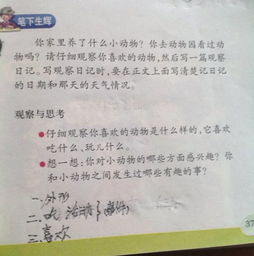 笔下生辉
你家里养了什么小动物？你去动物园看过动
物吗？请仔细观察你喜欢的动物，然后写一篇观察
日记。写观察日记时，要在正文上面写清楚记日记
的日期和那天的天气情况。
观察与思考
●仔细观察你喜欢的动物是什么样的，它喜欢
吃什么、玩儿什么。
●想一想：你对小动物的哪些方面感兴趣？你
和小动物之间发生过哪些有趣的事？
一、外形
二、
三、喜欢
37